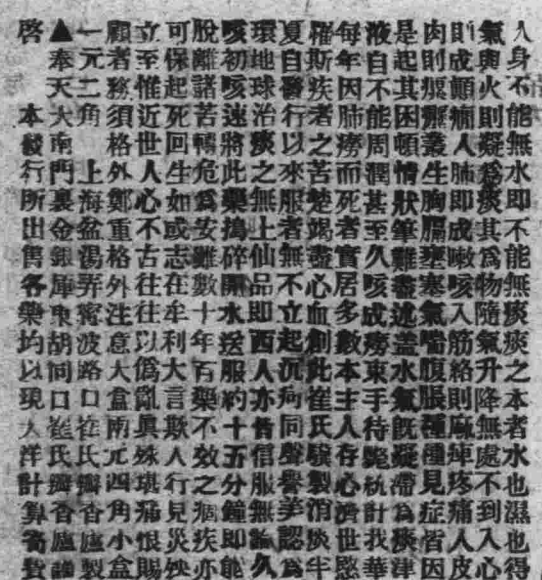 人身不能無水即不能無痰痰之本者水也濕也得
氣與火則凝為痰其為物隨氣升降無處不到入心
則成顛癇人肺即成嗽咳入筋絡則麻埤疼痛入皮
肉則瘰癧叢生胸膈壅塞氣喘腹脹種種見症皆因
是起其困頓情狀筆難盡述蓋水氣既凝滯為痰津
液自不能周潤甚至久咳成癆束手待斃統計我華
每年因肺癆而死者實居多數本主人存心濟世愍
罹斯疾者之苦楚竭盡心血創此崔氏瓣製消痰半
夏自醫行以來服者無不立起沉疴同聲譽美認為
環地球治痰之無上仙品即西人亦皆信服無論久
咳初咳速將此藥搗碎開水送服約十五分鐘即能
脫離諸苦轉危為安雖數十年百藥不效之痼疾亦
可保起死回生如或志在牟利大言欺人行見災殃
立至惟近世人心不古往往以偽亂眞殊堪痛恨賜
顧者務須格外鄭重格外注意大盒兩元四角小盒
一元二角　上海盆湯弄甯波路口崔氏瓣香廬製
▲奉天大南門裏金銀庫東胡同口崔氏瓣香廬謹
啓　本發行所出售各藥均以現大洋計算寄費